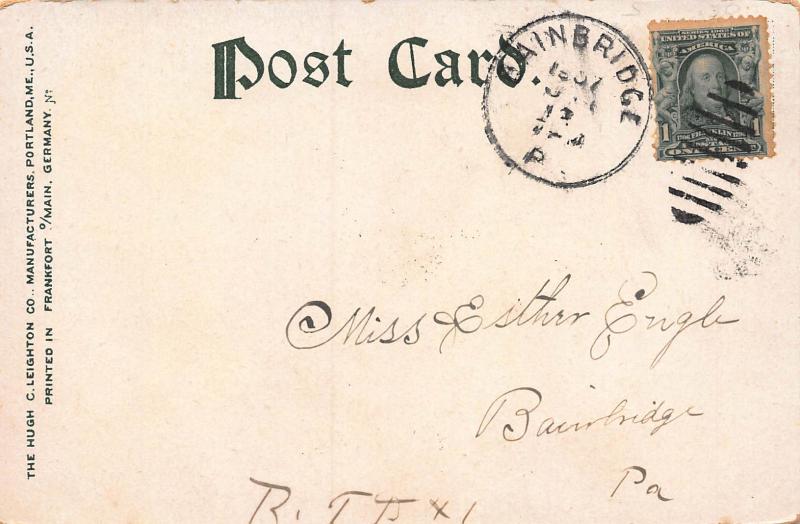 Post Card.
BAINBRIDGE
PA
SERIES 1902
UNITED STATES OF
AMERICA
1 FRANKLIN 1
POSTAGE
ONE CENT
Miss Esther Engle
Bainbridge
Pa
THE HUGH C. LEIGHTON CO., MANUFACTURERS, PORTLAND, ME., U.S.A.
PRINTED IN FRANKFORT o/MAIN, GERMANY. No